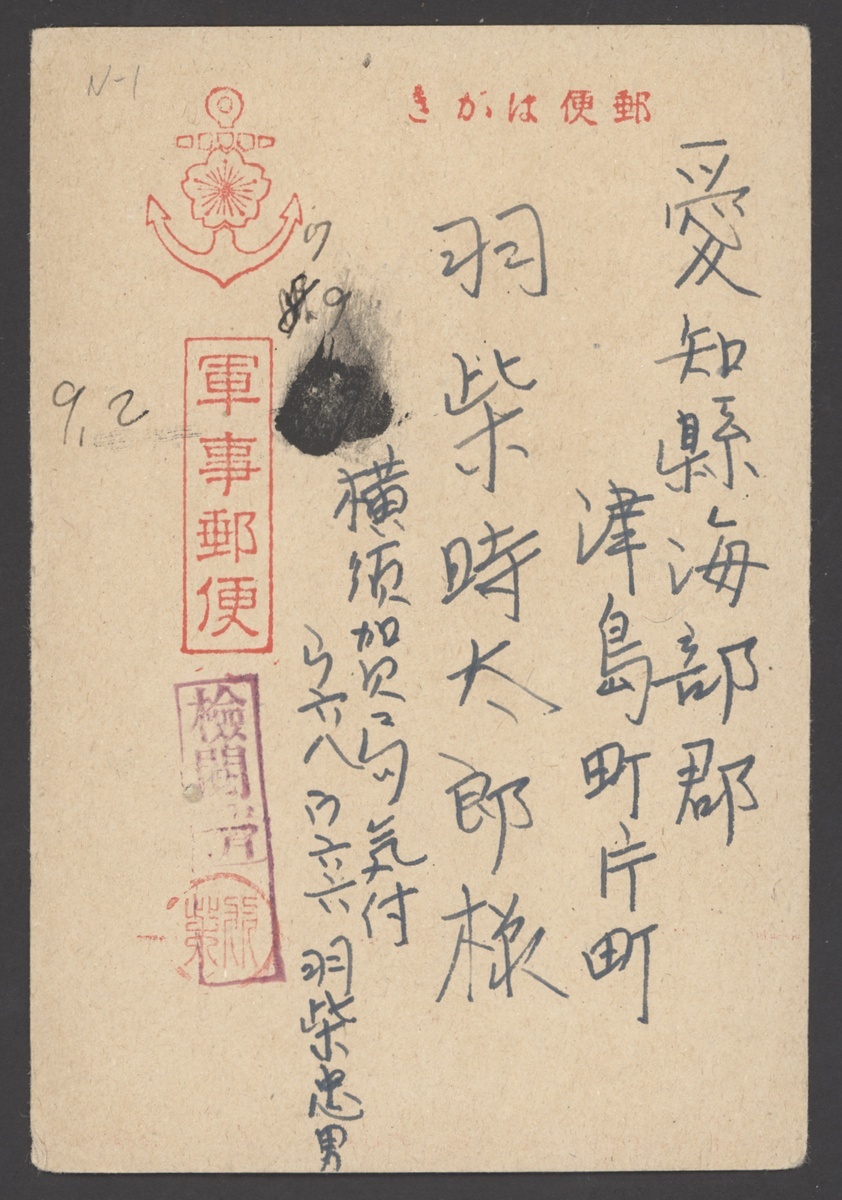 郵便はがき
愛知縣海部郡
津島町片町
羽柴時太郎様
横須賀局気付
ウ六八ウ六六 羽柴忠男
軍事郵便
検閲済
羽柴
N-1
9.2